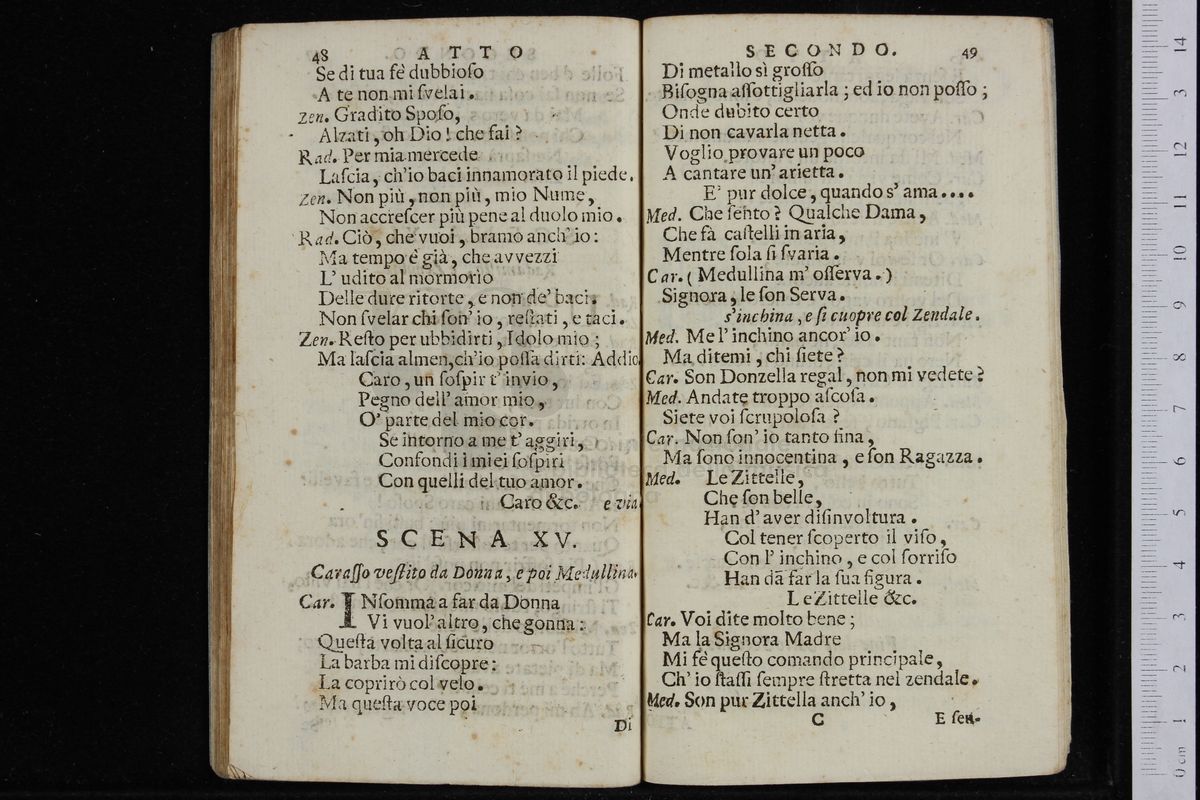 48 ATTO
Se di tua fè dubbioſo
A te non mi ſvelai.
Zen. Gradito Spoſo,
Alzati, oh Dio! che fai?
Rad. Per mia mercede
Laſcia, ch'io baci innamorato il piede.
Zen. Non più, non più, mio Nume,
Non accreſcer più pene al duolo mio.
Rad. Ciò, che vuoi, bramo anch'io:
Ma tempo è già, che avvezzi
L'udito al mormorio
Delle dure ritorte, e non de' baci.
Non ſvelar chi ſon' io, reſtati, e taci.
Zen. Reſto per ubbidirti, Idolo mio;
Ma laſcia almen, ch'io poſſa dirti: Addio
Caro, un ſoſpir t'invio,
Pegno dell'amor mio,
O' parte del mio cor.
Se intorno a me t'aggiri,
Confondi i miei ſoſpiri
Con quelli del tuo amor.
Caro &c. e via.
SCENA XV.
Caraſſo veſtito da Donna, e poi Medullina.
Car. INſomma a far da Donna
Vi vuol' altro, che gonna:
Queſta volta al ſicuro
La barba mi diſcopre:
La coprirò col velo.
Ma queſta voce poi
Di
SECONDO. 49
Di metallo sì groſſo
Biſogna aſſottigliarla; ed io non poſſo;
Onde dubito certo
Di non cavarla netta.
Voglio provare un poco
A cantare un' arietta.
E' pur dolce, quando s' ama....
Med. Che ſento? Qualche Dama,
Che fà caſtelli in aria,
Mentre ſola ſi ſvaria.
Car. (Medullina m' oſſerva.)
Signora, le ſon Serva.
s'inchina, e ſi cuopre col Zendale.
Med. Me l'inchino ancor' io.
Ma ditemi, chi ſiete?
Car. Son Donzella regal, non mi vedete?
Med. Andate troppo aſcoſa.
Siete voi ſcrupoloſa?
Car. Non ſon' io tanto fina,
Ma ſono innocentina, e ſon Ragazza.
Med. Le Zittelle,
Che ſon belle,
Han d'aver diſinvoltura.
Col tener ſcoperto il viſo,
Con l'inchino, e col ſorriſo
Han dà far la ſua figura.
Le Zittelle &c.
Car. Voi dite molto bene;
Ma la Signora Madre
Mi fè queſto comando principale,
Ch' io ſtaſſi ſempre ſtretta nel zendale.
Med. Son pur Zittella anch' io,
C E ſen-
0 cm 1 2 3 4 5 6 7 8 9 10 11 12 13 14